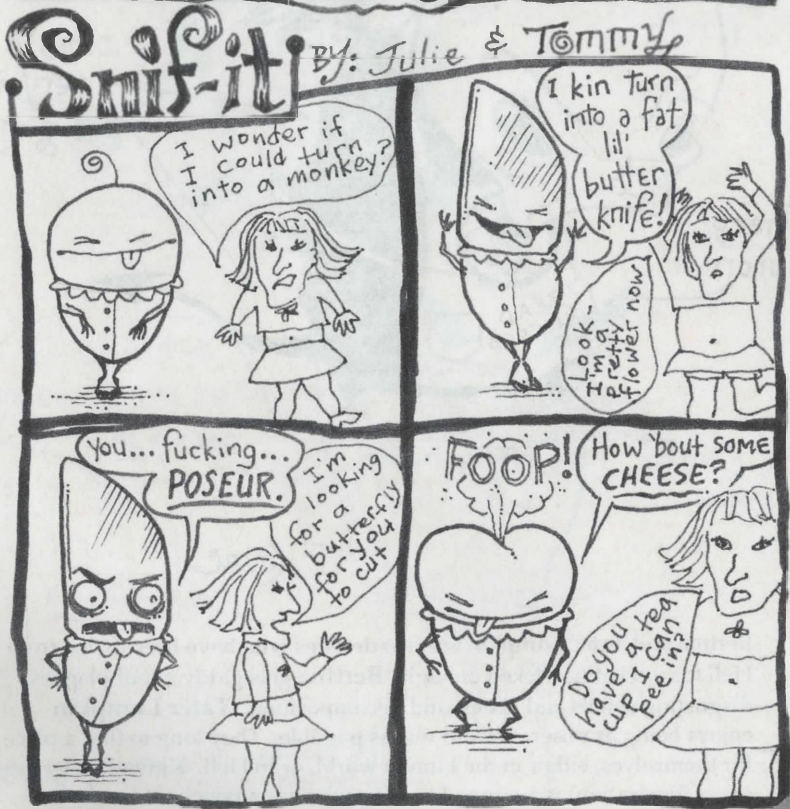 Snif-it
BY: Julie & Tommy
I wonder if
I could turn
into a monkey?
I kin turn
into a fat
lil'
butter
knife!
Look
I'm a
pretty
flower now
You... fucking...
POSEUR.
I'm
looking
for a
butterfly
for you
to cut
FOOP!
How bout SOME
CHEESE?
Do you
have a tea
cup I can
pee in?